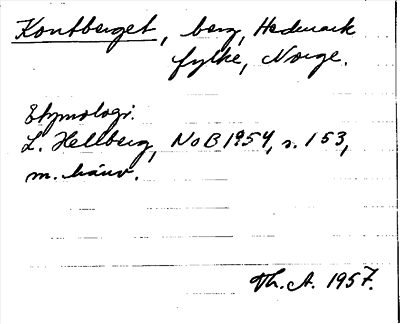 Kontberget, berg, Hedmark
fylke, Norge.
Etymologi.
L. Hellberg, NoB 1954, s. 153,
m. hänv.
Th. A. 1957.